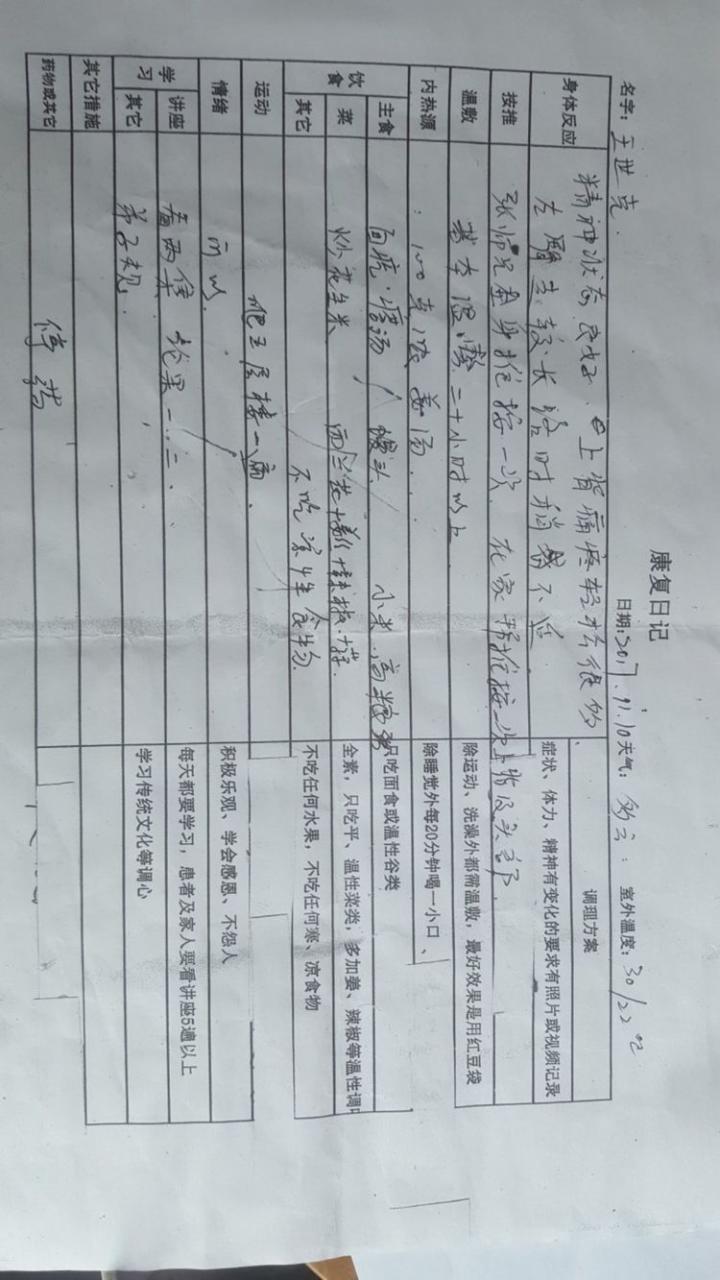 康复日记
名字：王世克 日期：2017.9.10 天气：多云 室外温度：30/22℃
精神状态良好 上背痛 轻松很多 调理方案
身体反应 左腿走较长路时稍 不 症状、体力、精神有变化的要求有照片或视频记录
按推 张师兄全身推按一次 在家 推按一次上背及头部
温敷 基本温敷二十小时以上 除运动、洗澡外都需温敷，最好效果是用红豆袋
内热源 姜汤 除睡觉外每20分钟喝一小口
饮食
主食 馒头 小米 高粱 只吃面食或温性谷类
菜 炒花生米 西兰花 辣椒 全素，只吃平、温性菜类，多加姜、辣椒等温性调
其它 不吃凉性食物 不吃任何水果，不吃任何寒、凉食物
运动 爬五层楼一
情绪 可以 积极乐观、学会感恩、不怨人
学习
讲座 看两集 一.二. 每天都要学习，患者及家人要看讲座5遍以上
其它 弟子规 学习传统文化等调心
其它措施
药物或其它 停